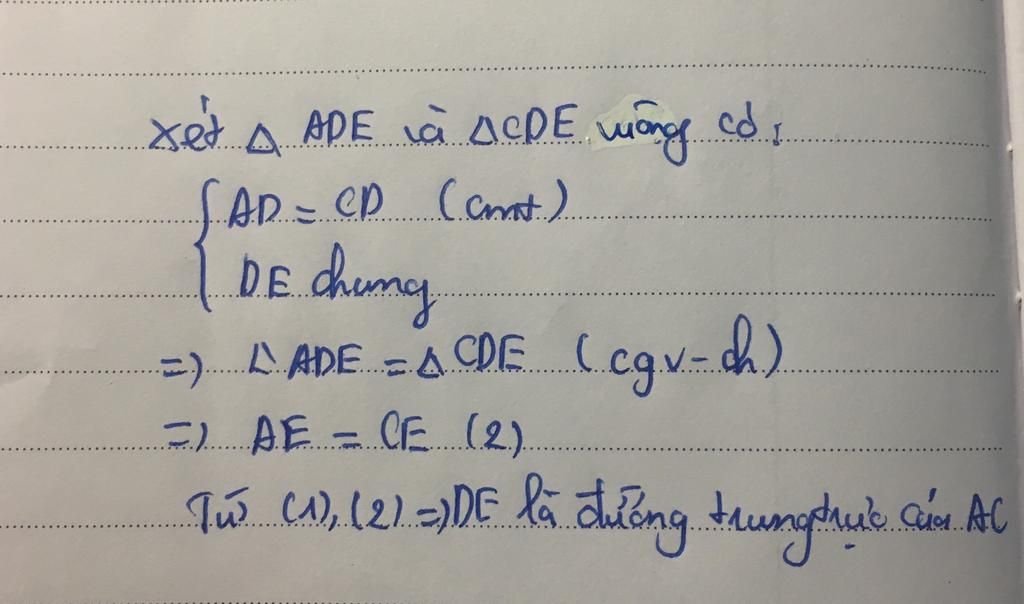 Xét △ ADE và △CDE vuông có:
AD = CD (cmt)
DE chung
=> △ ADE = △ CDE (cgv-ch)
=> AE = CE (2)
Từ (1), (2) => DE là đường trung trực của AC